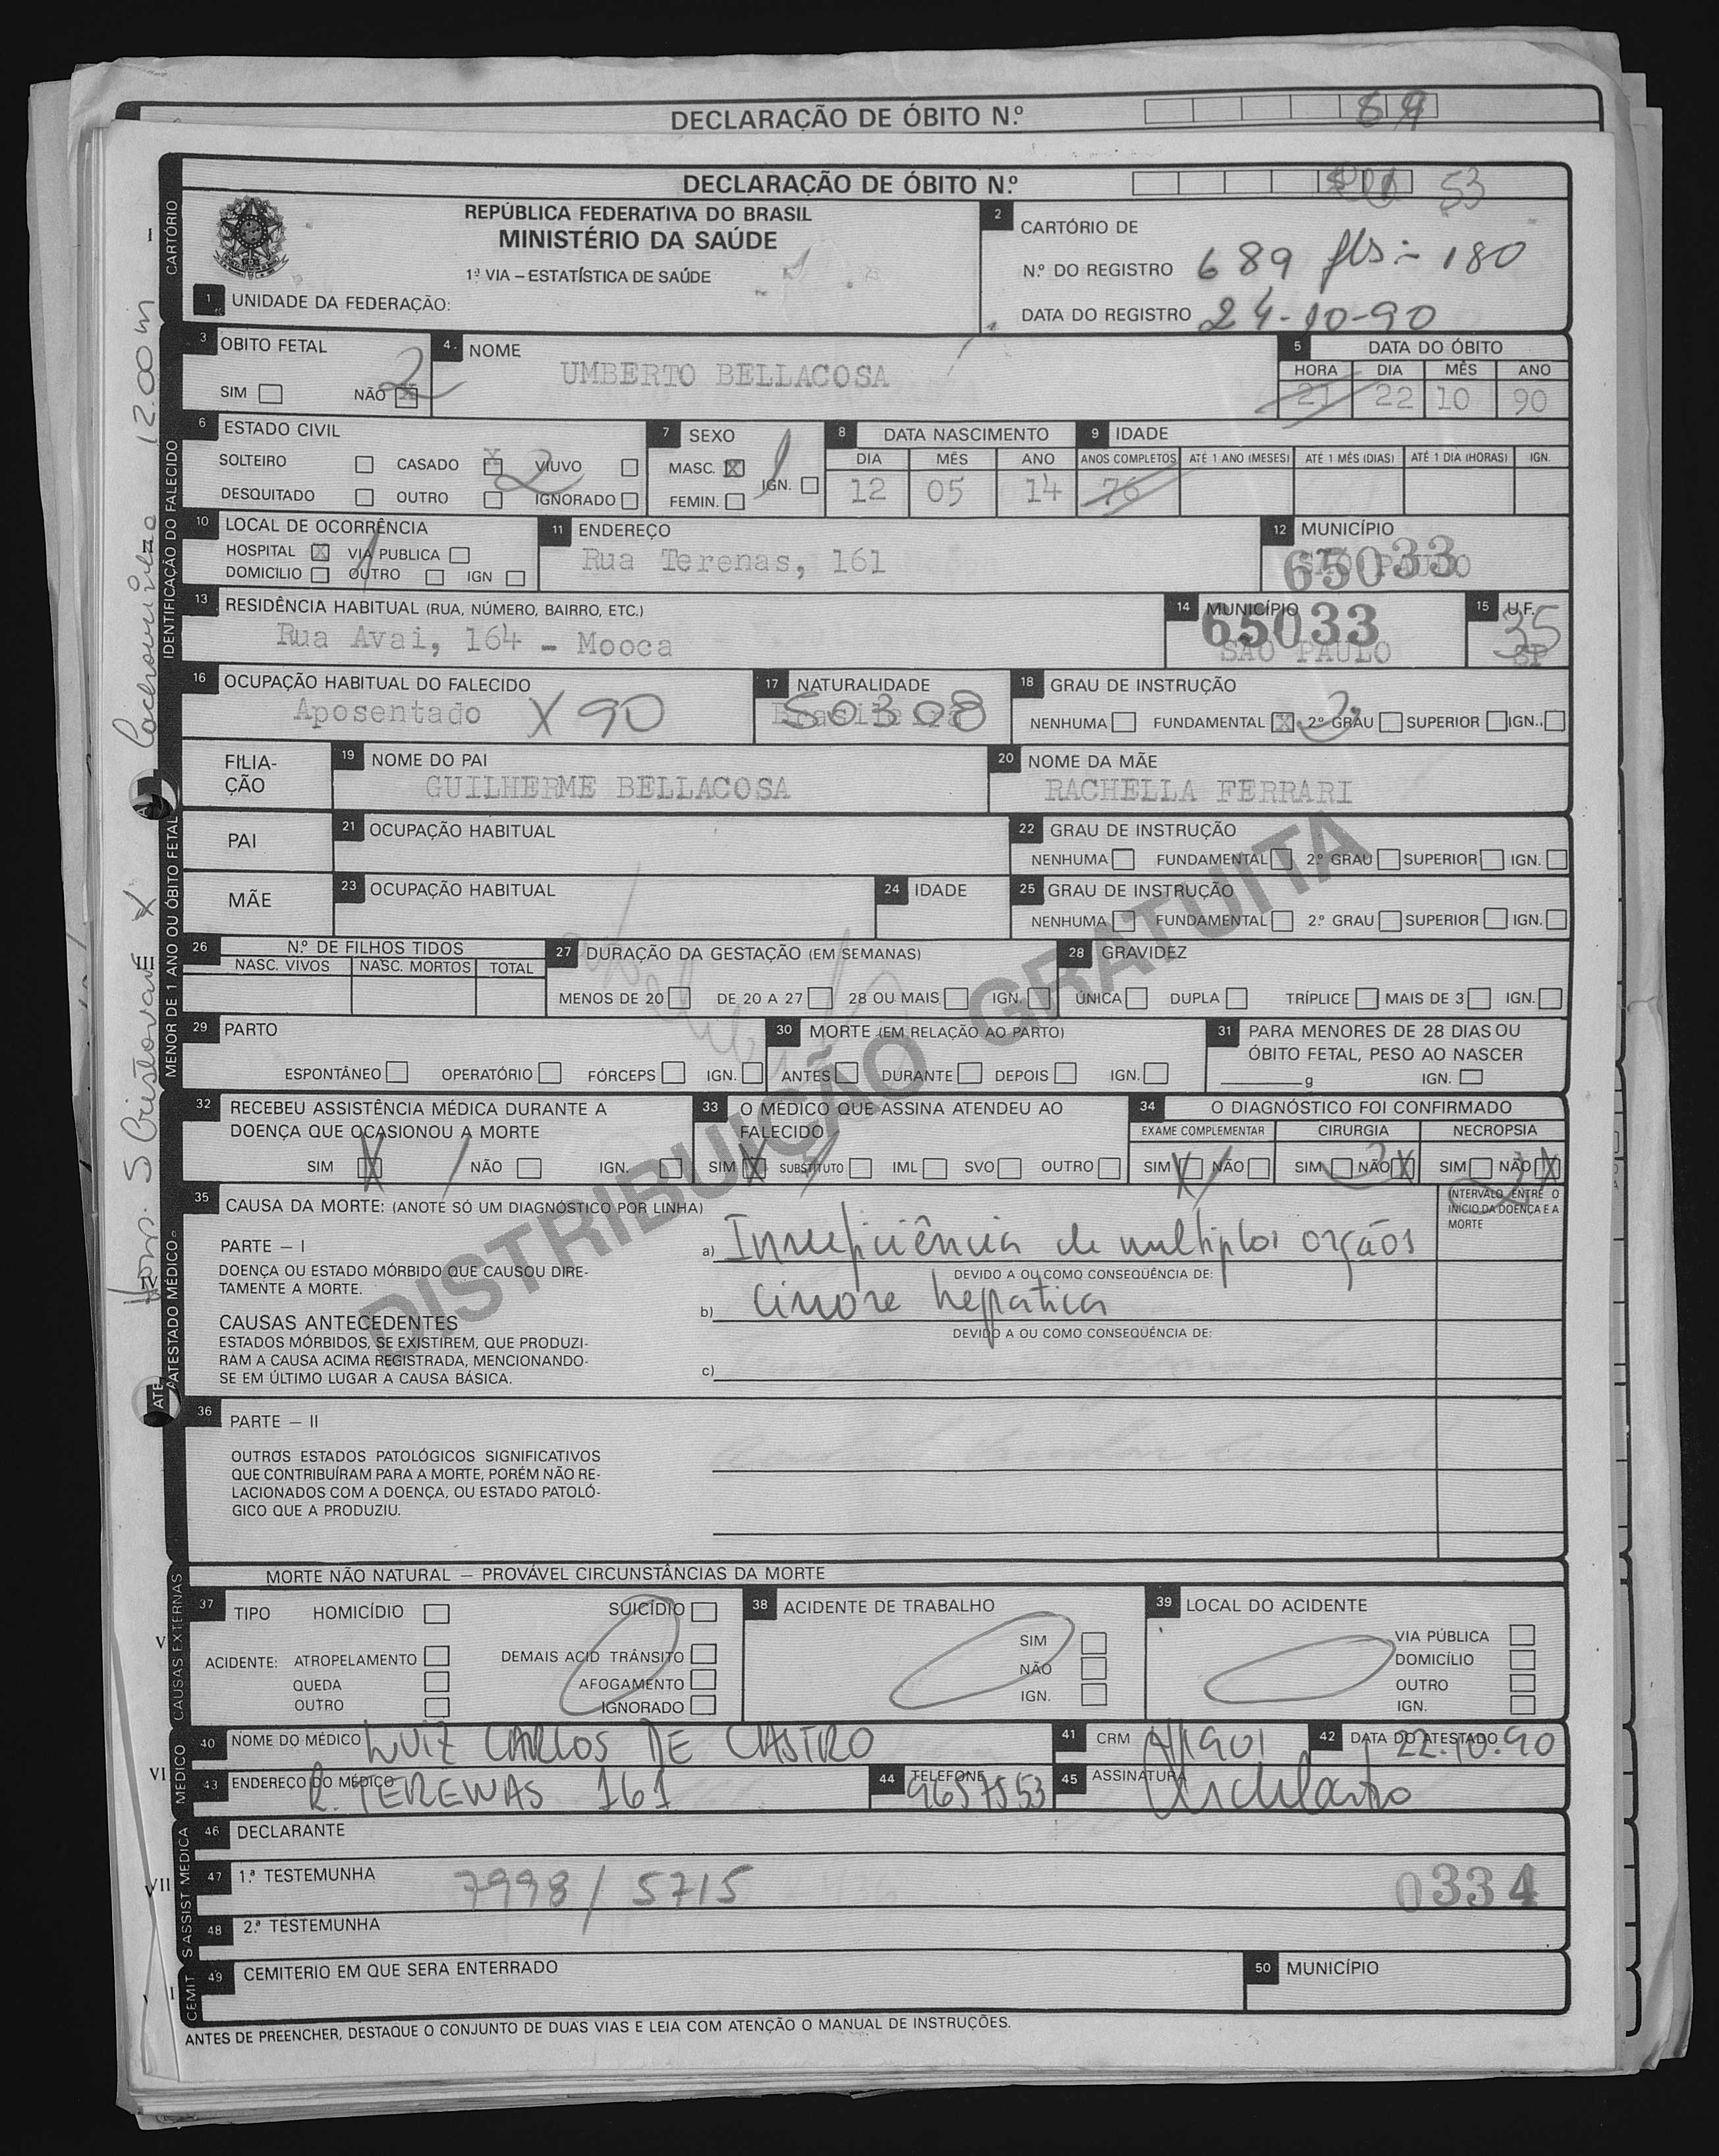 DECLARAÇÃO DE ÓBITO N.º
DECLARAÇÃO DE ÓBITO N.º 53
CARTÓRIO
REPÚBLICA FEDERATIVA DO BRASIL
MINISTÉRIO DA SAÚDE
1.ª VIA – ESTATÍSTICA DE SAÚDE
1 UNIDADE DA FEDERAÇÃO:
2 CARTÓRIO DE
N.º DO REGISTRO 689 fls - 180
DATA DO REGISTRO 24-10-90
IDENTIFICAÇÃO DO FALECIDO
3 OBITO FETAL
SIM NÃO X 2
4. NOME
UMBERTO BELLACOSA
5 DATA DO ÓBITO
HORA DIA MÊS ANO
21 22 10 90
6 ESTADO CIVIL
SOLTEIRO CASADO X 2 VIUVO
DESQUITADO OUTRO IGNORADO
7 SEXO
MASC. X IGN. 1
FEMIN.
8 DATA NASCIMENTO
DIA MÊS ANO
12 05 14
9 IDADE
ANOS COMPLETOS ATÉ 1 ANO (MESES) ATÉ 1 MÊS (DIAS) ATÉ 1 DIA (HORAS) IGN.
76
10 LOCAL DE OCORRÊNCIA
HOSPITAL X VIA PUBLICA
DOMICÍLIO OUTRO IGN
11 ENDEREÇO
Rua Terenas, 161
12 MUNICÍPIO
SÃO PAULO
65033
13 RESIDÊNCIA HABITUAL (RUA, NÚMERO, BAIRRO, ETC.)
Rua Avai, 164 - Mooca
14 MUNICÍPIO
65033
SÃO PAULO
15 U.F.
35
SP
16 OCUPAÇÃO HABITUAL DO FALECIDO
Aposentado X 90
17 NATURALIDADE
Brasileira
50308
18 GRAU DE INSTRUÇÃO
NENHUMA FUNDAMENTAL X 2.º GRAU SUPERIOR IGN..
FILIA-
ÇÃO
19 NOME DO PAI
GUILHERME BELLACOSA
20 NOME DA MÃE
RACHELLA FERRARI
MENOR DE 1 ANO OU ÓBITO FETAL
PAI
21 OCUPAÇÃO HABITUAL
22 GRAU DE INSTRUÇÃO
NENHUMA FUNDAMENTAL 2.º GRAU SUPERIOR IGN.
MÃE
23 OCUPAÇÃO HABITUAL
24 IDADE
25 GRAU DE INSTRUÇÃO
NENHUMA FUNDAMENTAL 2.º GRAU SUPERIOR IGN.
26 N.º DE FILHOS TIDOS
NASC. VIVOS NASC. MORTOS TOTAL
27 DURAÇÃO DA GESTAÇÃO (EM SEMANAS)
MENOS DE 20 DE 20 A 27 28 OU MAIS IGN.
28 GRAVIDEZ
ÚNICA DUPLA TRÍPLICE MAIS DE 3 IGN.
29 PARTO
ESPONTÂNEO OPERATÓRIO FÓRCEPS IGN.
30 MORTE (EM RELAÇÃO AO PARTO)
ANTES DURANTE DEPOIS IGN.
31 PARA MENORES DE 28 DIAS OU
ÓBITO FETAL, PESO AO NASCER
g IGN.
DISTRIBUIÇÃO GRATUITA
ATESTADO MÉDICO
32 RECEBEU ASSISTÊNCIA MÉDICA DURANTE A
DOENÇA QUE OCASIONOU A MORTE
SIM X NÃO IGN.
33 O MÉDICO QUE ASSINA ATENDEU AO
FALECIDO
SIM X SUBSTITUTO IML SVO OUTRO
34 O DIAGNÓSTICO FOI CONFIRMADO
EXAME COMPLEMENTAR CIRURGIA NECROPSIA
SIM X NÃO SIM NÃO X SIM NÃO X
35 CAUSA DA MORTE: (ANOTE SÓ UM DIAGNÓSTICO POR LINHA)
INTERVALO ENTRE O
INÍCIO DA DOENÇA E A
MORTE
PARTE – I
DOENÇA OU ESTADO MÓRBIDO QUE CAUSOU DIRE-
TAMENTE A MORTE.
a) Insuficiência de multiplos orgãos
DEVIDO A OU COMO CONSEQÜÊNCIA DE:
CAUSAS ANTECEDENTES
ESTADOS MÓRBIDOS, SE EXISTIREM, QUE PRODUZI-
RAM A CAUSA ACIMA REGISTRADA, MENCIONANDO-
SE EM ÚLTIMO LUGAR A CAUSA BÁSICA.
b) cirrose hepatica
DEVIDO A OU COMO CONSEQÜÊNCIA DE:
c)
36 PARTE – II
OUTROS ESTADOS PATOLÓGICOS SIGNIFICATIVOS
QUE CONTRIBUÍRAM PARA A MORTE, PORÉM NÃO RE-
LACIONADOS COM A DOENÇA, OU ESTADO PATOLÓ-
GICO QUE A PRODUZIU.
CAUSAS EXTERNAS
MORTE NÃO NATURAL – PROVÁVEL CIRCUNSTÂNCIAS DA MORTE
37 TIPO HOMICÍDIO SUICÍDIO
ACIDENTE: ATROPELAMENTO DEMAIS ACID TRÂNSITO
QUEDA AFOGAMENTO
OUTRO IGNORADO
38 ACIDENTE DE TRABALHO
SIM
NÃO
IGN.
39 LOCAL DO ACIDENTE
VIA PÚBLICA
DOMICÍLIO
OUTRO
IGN.
MÉDICO
40 NOME DO MÉDICO LUIZ CARLOS DE CASTRO
41 CRM 41901
42 DATA DO ATESTADO 22.10.90
43 ENDEREÇO DO MÉDICO R. TERENAS 161
44 TELEFONE 9657553
45 ASSINATURA
S ASSIST MEDICA
46 DECLARANTE
47 1.ª TESTEMUNHA 7998 / 5715 0334
48 2.ª TESTEMUNHA
CEMIT.
49 CEMITERIO EM QUE SERA ENTERRADO
50 MUNICÍPIO
ANTES DE PREENCHER, DESTAQUE O CONJUNTO DE DUAS VIAS E LEIA COM ATENÇÃO O MANUAL DE INSTRUÇÕES.